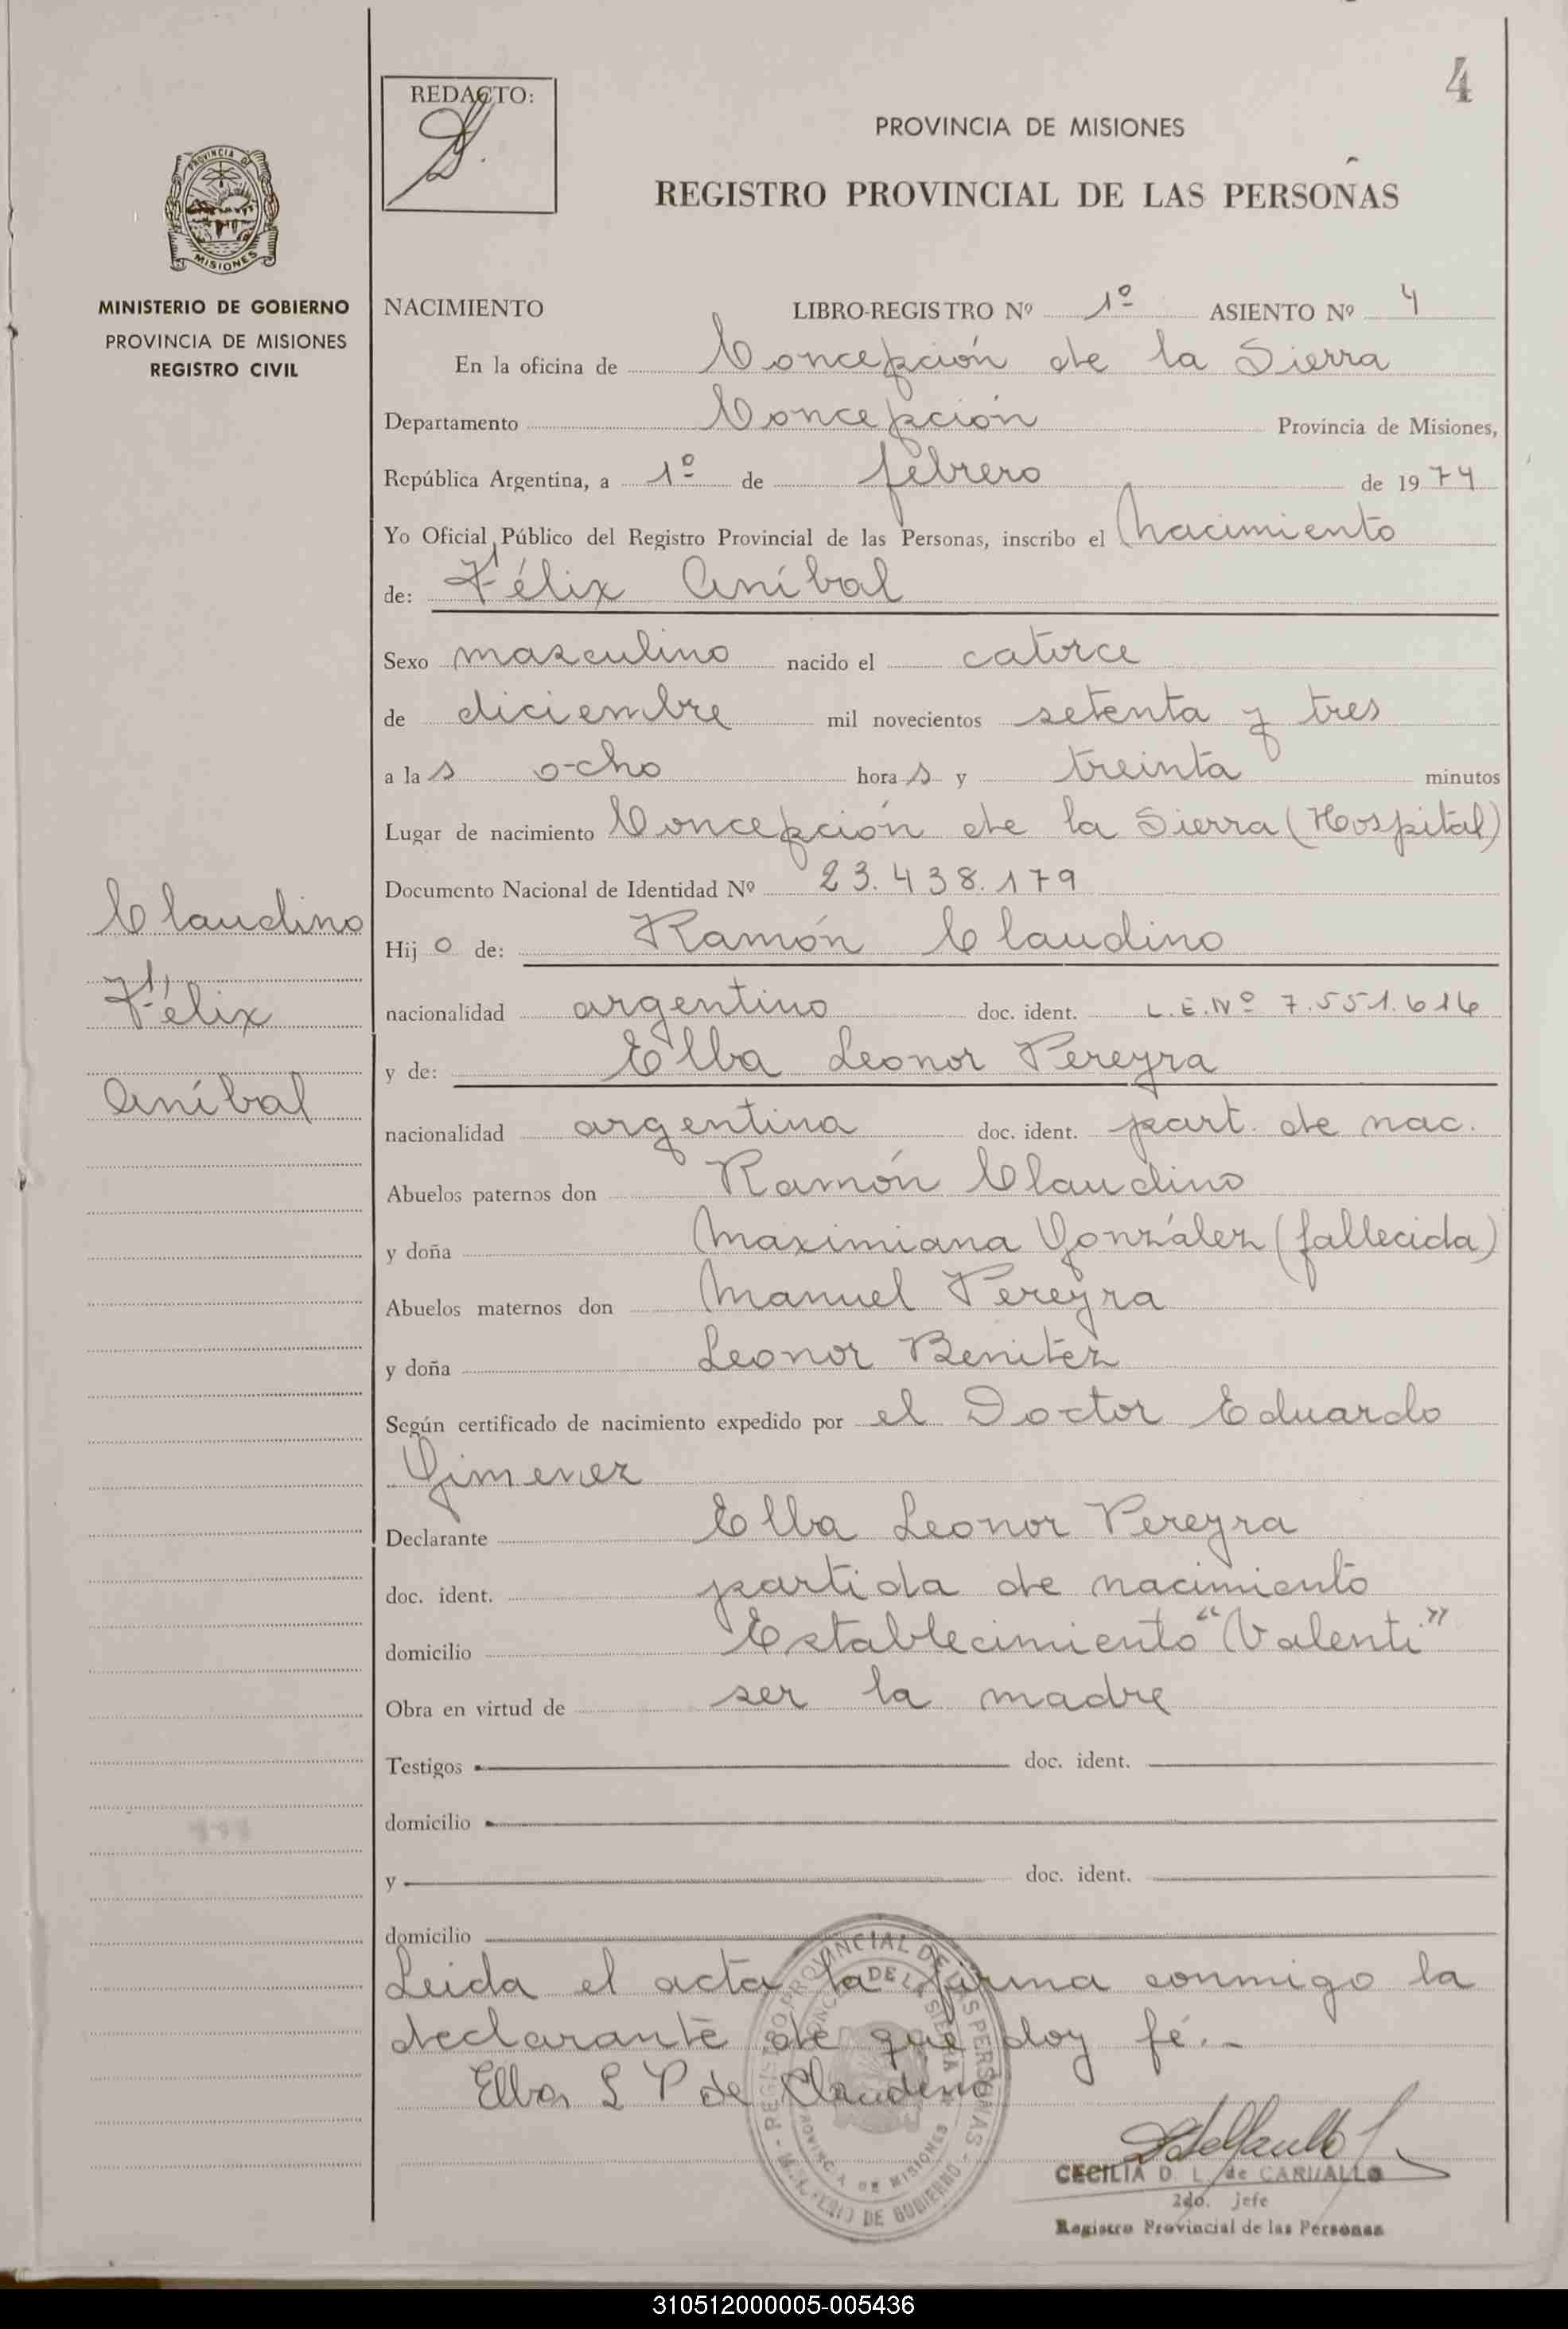 4
REDACTO:
PROVINCIA DE MISIONES
REGISTRO PROVINCIAL DE LAS PERSONAS
PROVINCIA DE
MISIONES
MINISTERIO DE GOBIERNO
PROVINCIA DE MISIONES
REGISTRO CIVIL
NACIMIENTO LIBRO-REGISTRO Nº 1º ASIENTO Nº 4
En la oficina de Concepción de la Sierra
Departamento Concepción Provincia de Misiones,
República Argentina, a 1º de febrero de 1974
Yo Oficial Público del Registro Provincial de las Personas, inscribo el Nacimiento
de: Félix Aníbal
Sexo masculino nacido el catorce
de diciembre mil novecientos setenta y tres
a las ocho horas y treinta minutos
Lugar de nacimiento Concepción de la Sierra (Hospital)
Documento Nacional de Identidad Nº 23.438.179
Claudino
Félix
Aníbal
Hijo de: Ramón Claudino
nacionalidad argentino doc. ident. L.E.Nº 7.551.616
y de: Elba Leonor Pereyra
nacionalidad argentina doc. ident. part. de nac.
Abuelos paternos don Ramón Claudino
y doña Maximiana González (fallecida)
Abuelos maternos don Manuel Pereyra
y doña Leonor Benitez
Según certificado de nacimiento expedido por el Doctor Eduardo
Gimenez
Declarante Elba Leonor Pereyra
doc. ident. partida de nacimiento
domicilio Establecimiento "Valenti"
Obra en virtud de ser la madre
Testigos doc. ident.
domicilio
y doc. ident.
domicilio
Leida el acta la firma conmigo la
declarante de que doy fé.-
Elba L P de Claudino
REGISTRO PROVINCIAL DE LAS PERSONAS
CONCEPCION DE LA SIERRA
PROVINCIA DE MISIONES
DE GOBIERNO
CECILIA D. L. de CARVALLO
2do. Jefe
Registro Provincial de las Personas
310512000005-005436